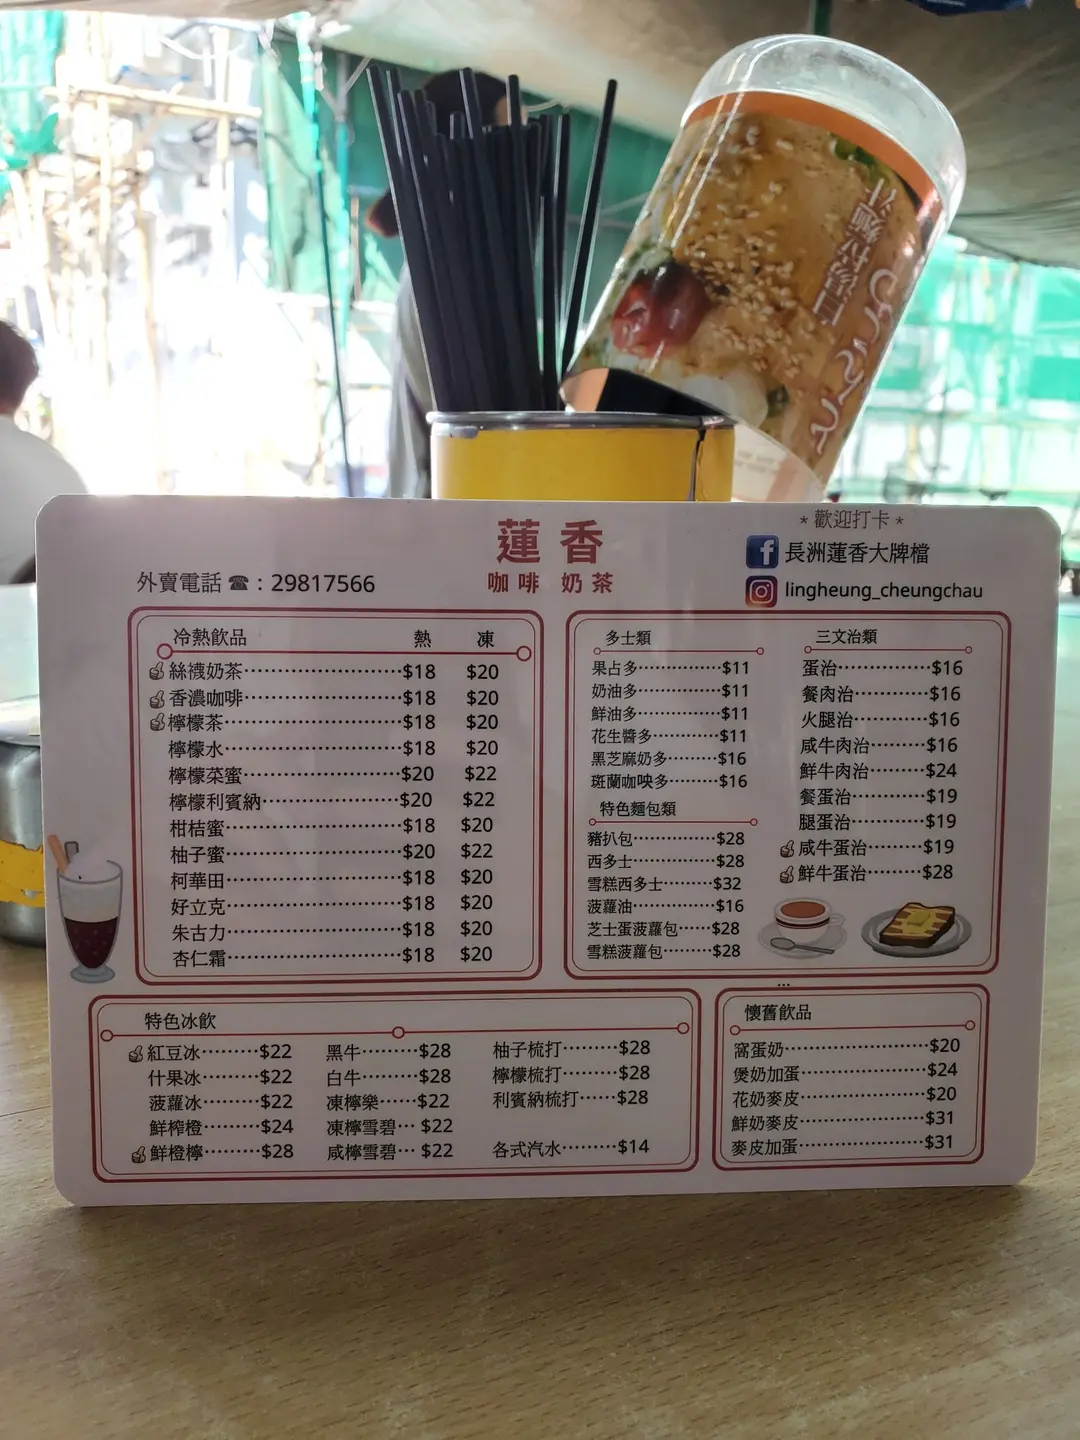 白湯拉麵汁
とんこつ
蓮香
咖啡 奶茶
外賣電話☎：29817566
*歡迎打卡*
長洲蓮香大牌檔
lingheung_cheungchau
冷熱飲品 熱 凍
絲襪奶茶 $18 $20
香濃咖啡 $18 $20
檸檬茶 $18 $20
檸檬水 $18 $20
檸檬菜蜜 $20 $22
檸檬利賓納 $20 $22
柑桔蜜 $18 $20
柚子蜜 $20 $22
柯華田 $18 $20
好立克 $18 $20
朱古力 $18 $20
杏仁霜 $18 $20
多士類
果占多 $11
奶油多 $11
鮮油多 $11
花生醬多 $11
黑芝麻奶多 $16
斑蘭咖央多 $16
特色麵包類
豬扒包 $28
西多士 $28
雪糕西多士 $32
菠蘿油 $16
芝士蛋菠蘿包 $28
雪糕菠蘿包 $28
三文治類
蛋治 $16
餐肉治 $16
火腿治 $16
咸牛肉治 $16
鮮牛肉治 $24
餐蛋治 $19
腿蛋治 $19
咸牛蛋治 $19
鮮牛蛋治 $28
特色冰飲
紅豆冰 $22
什果冰 $22
菠蘿冰 $22
鮮榨橙 $24
鮮橙檸 $28
黑牛 $28
白牛 $28
凍檸樂 $22
凍檸雪碧 $22
咸檸雪碧 $22
柚子梳打 $28
檸檬梳打 $28
利賓納梳打 $28
各式汽水 $14
懷舊飲品
窩蛋奶 $20
煲奶加蛋 $24
花奶麥皮 $20
鮮奶麥皮 $31
麥皮加蛋 $31